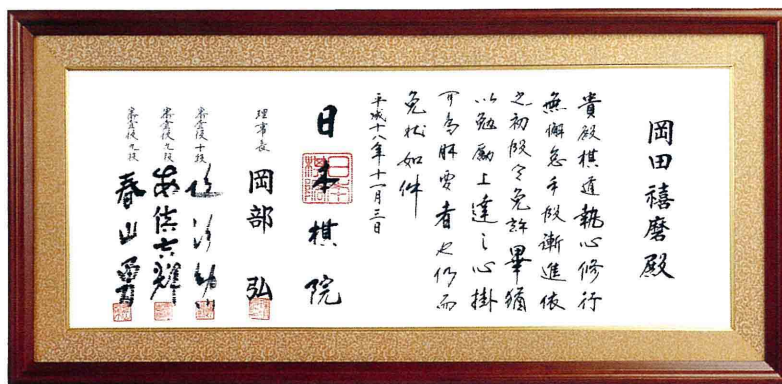 岡田禧磨殿
貴殿棋道執心修行
無懈怠手段漸進依
之初段令免許畢猶
以勉励上達之心掛
可為肝要者也仍而
免状如件
平成十八年十一月三日
日本棋院
理事長 岡部 弘
審査役 十段
審査役 九段
審査役 九段 春山勇